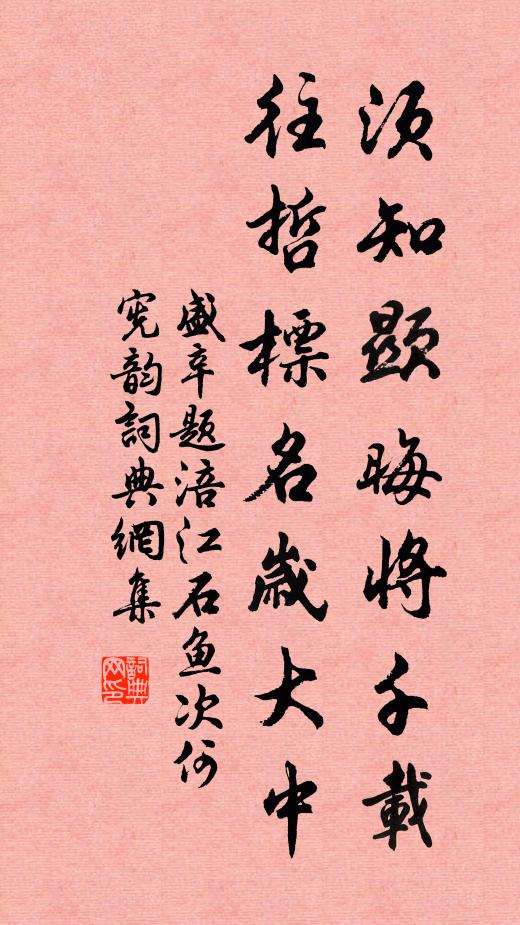 須知顯晦將千載
往哲標名歲大中
盛辛題涪江石鱼次何
宪韵詞典網集
詞典网印